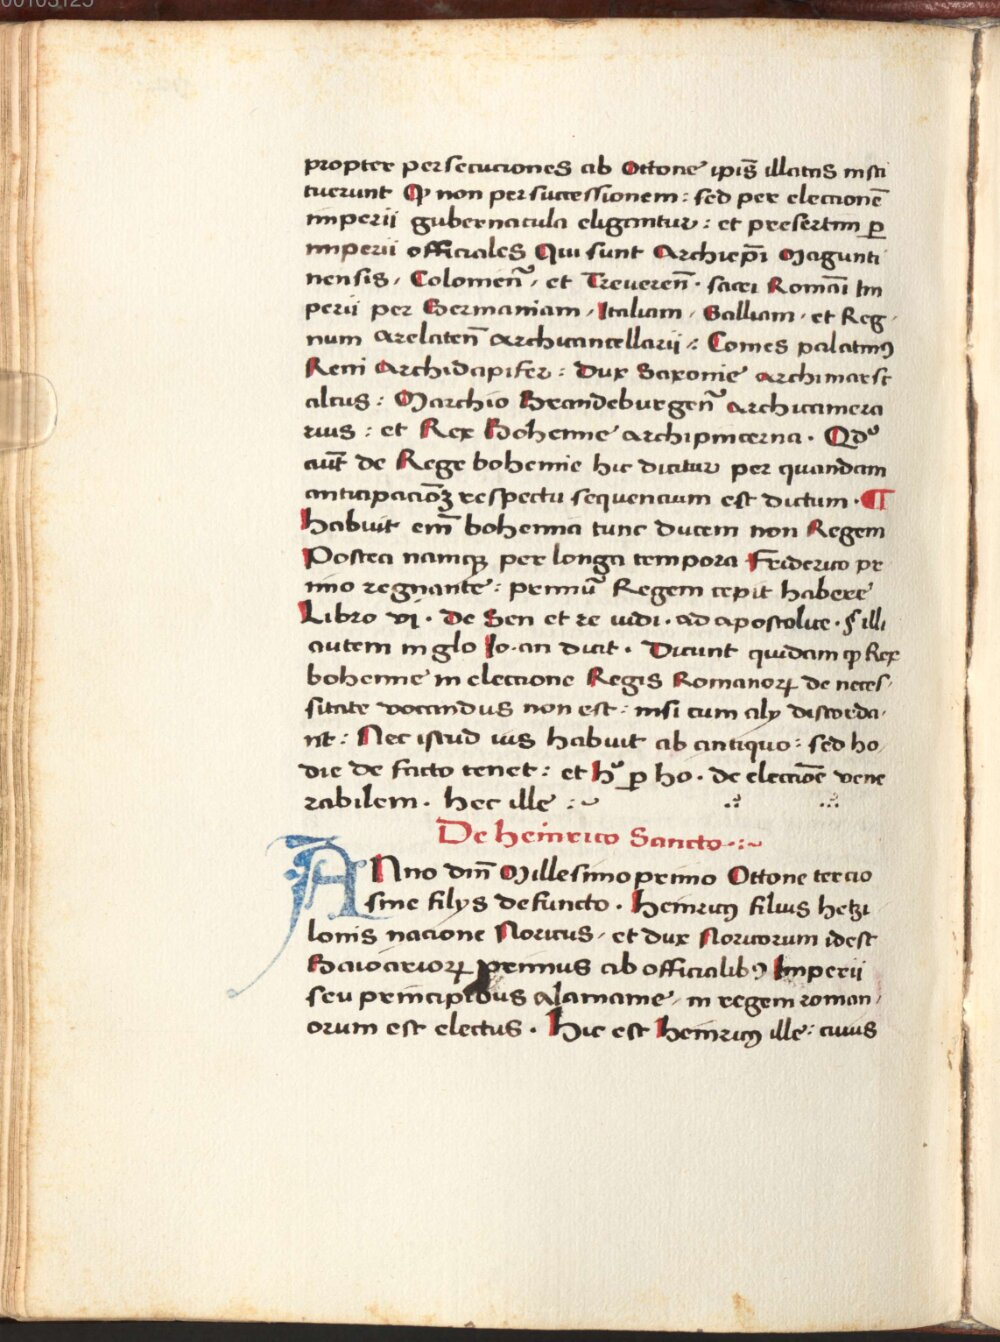 00103125
propter persecuciones ab Ottone ipis̄ illatas insti
tuerunt Qꝫ non per successionem : sed per eleccionē
imperii gubernacula eligantur : et presertim ꝑ
imperii officiales Qui sunt Archiep̄i Magunti
nensis, Colonien̄, et Treueren̄. sacri Romāi Im
perii per Germaniam, Italiam, Galliam, et Reg,
num Arelaten̄ Archicancellarii : Comes palatinꝰ
Reni Archidapifer : Dux Saxonie Archimarsc
alcus : Marchio Brandeburgen̄ Archicamera
rius : et Rex Bohemie archipincerna. Qdᵒ
aut̄ de Rege bohemie hic dicitur per quandam
anticipacōꝫ respectu sequencium est dictum. ¶
habuit em̄ bohemia tunc ducem non Regem
Postea namqꝫ per longa tempora Friderico pr
imo regnante : primū Regem cepit habere
Libro vi. De Sen et re iudi. ad apostolice. § illi
autem in glo Io. an dicit. Dicunt quidam ꝙ Rex
bohemie in eleccione Regis Romanorꝝ de neces,
sitate vocandus non est : nisi cum alij discorda,
nt : Nec istud ius habuit ab antiquo : sed ho,
die de facto tenet : et hᵒ ꝑ ho. de elecciōe vene
rabilem. hec ille :~
De heinrico Sancto .:~
ANno dn̄i Millesimo primo Ottone tercio
sine filijs defuncto. Heinricꝰ filius hetzi
lonis nacione Noricus, et dux Noricorum idest
Baioariorꝝ primus ab officialibꝰ Imperii
seu principibus Alamanie, in regem roman,
orum est electus. Hic est Heinricꝰ ille : cuius